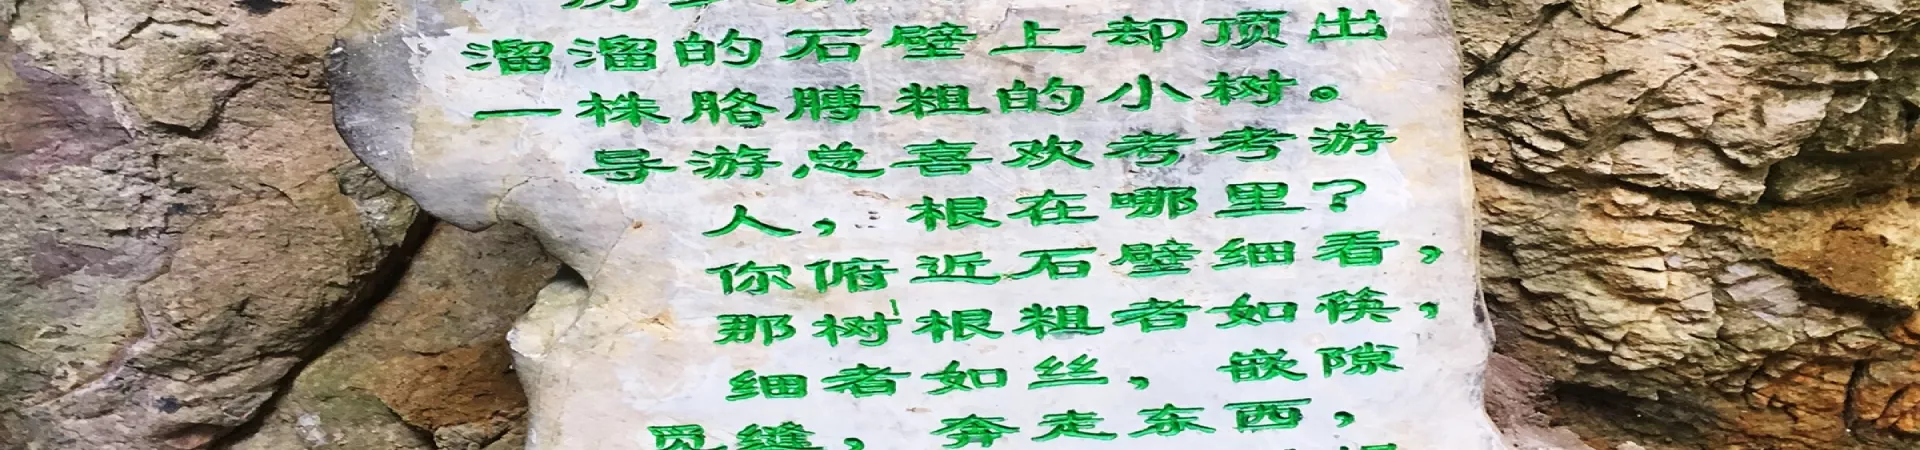 溜溜的石壁上却顶出
一株胳膊粗的小树。
导游总喜欢考考游
人，根在哪里？
你俯近石壁细看，
那树根粗者如筷，
细者如丝，嵌隙
觅缝，奔走东西，